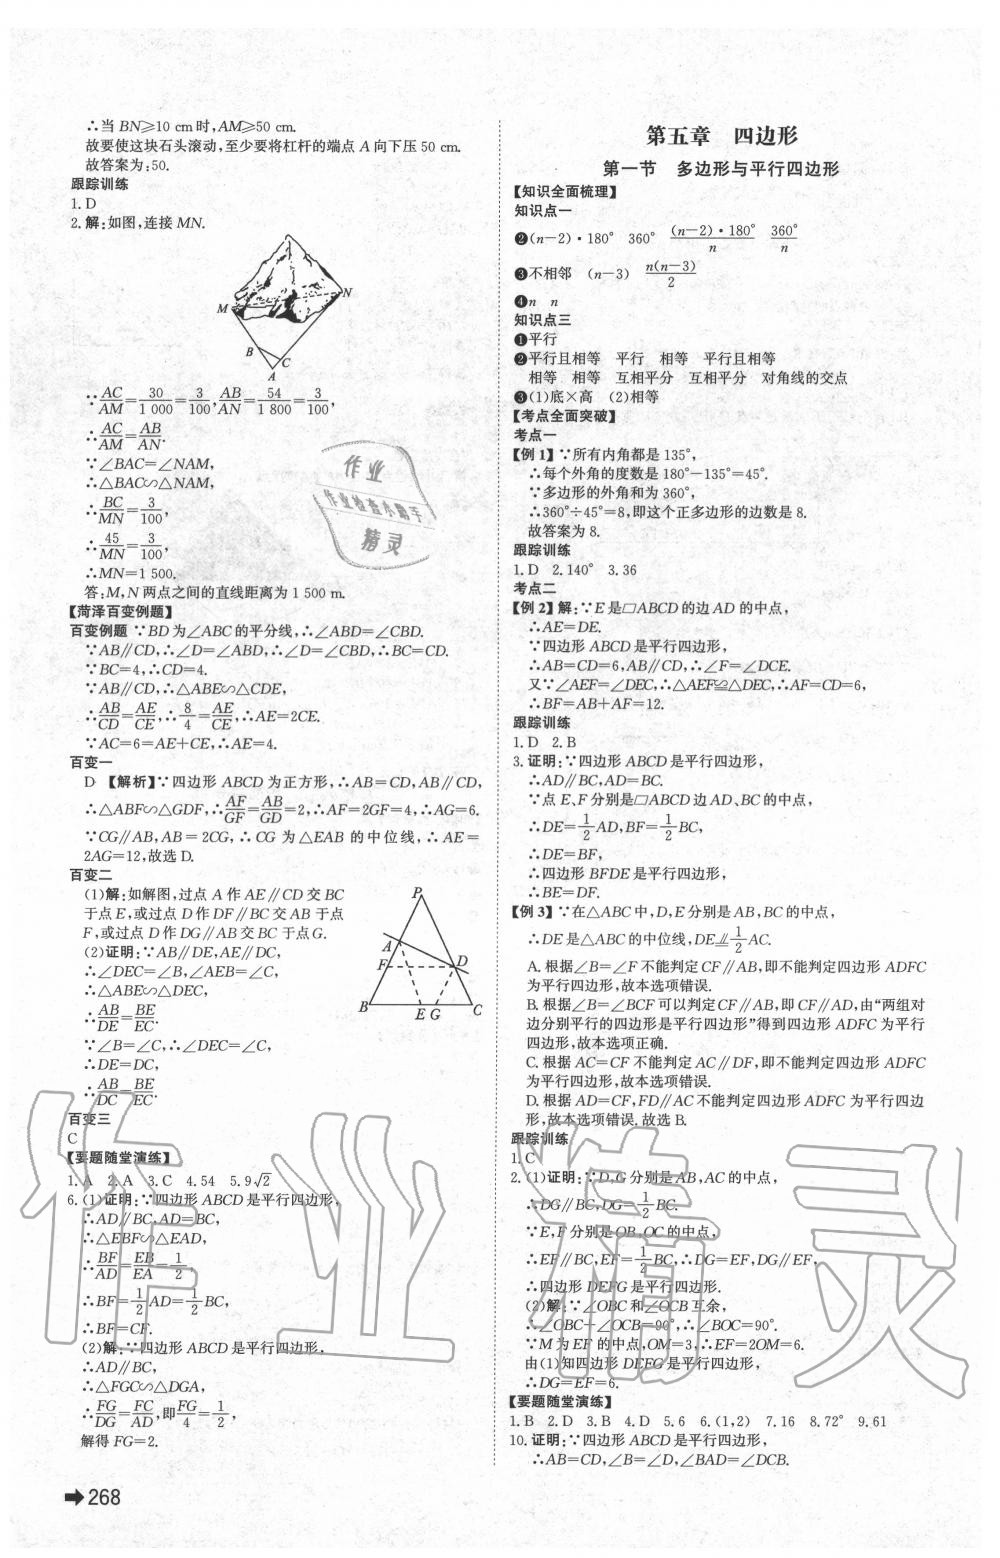 ∴当 BN≥10 cm 时,AM≥50 cm.
故要使这块石头滚动,至少要将杠杆的端点 A 向下压 50 cm.
故答案为:50.
跟踪训练
1. D
2. 解:如图,连接 MN.
M N B C A
∵AC/AM=30/1 000=3/100,AB/AN=54/1 800=3/100,
∴AC/AM=AB/AN.
∵∠BAC=∠NAM,
∴△BAC∽△NAM,
∴BC/MN=3/100,
∴45/MN=3/100,
∴MN=1 500.
答:M,N 两点之间的直线距离为 1 500 m.
【菏泽百变例题】
百变例题 ∵BD 为∠ABC 的平分线,∴∠ABD=∠CBD.
∵AB∥CD,∴∠D=∠ABD,∴∠D=∠CBD,∴BC=CD.
∵BC=4,∴CD=4.
∵AB∥CD,∴△ABE∽△CDE,
∴AB/CD=AE/CE,∴8/4=AE/CE,∴AE=2CE.
∵AC=6=AE+CE,∴AE=4.
百变一
D 【解析】∵四边形 ABCD 为正方形,∴AB=CD,AB∥CD,
∴△ABF∽△GDF,∴AF/GF=AB/GD=2,∴AF=2GF=4,∴AG=6.
∵CG∥AB,AB=2CG,∴CG 为△EAB 的中位线,∴AE=
2AG=12,故选 D.
百变二
(1)解:如解图,过点 A 作 AE∥CD 交 BC
于点 E,或过点 D 作 DF∥BC 交 AB 于点
F,或过点 D 作 DG∥AB 交 BC 于点 G.
(2)证明:∵AB∥DE,AE∥DC,
∴∠DEC=∠B,∠AEB=∠C,
∴△ABE∽△DEC,
∴AB/DE=BE/EC.
∵∠B=∠C,∴∠DEC=∠C,
∴DE=DC,
∴AB/DC=BE/EC.
P A F D B E G C
百变三
C
【要题随堂演练】
1. A 2. A 3. C 4. 54 5. 9√2
6. (1)证明:∵四边形 ABCD 是平行四边形,
∴AD∥BC,AD=BC,
∴△EBF∽△EAD,
∴BF/AD=EB/EA=1/2,
∴BF=1/2AD=1/2BC,
∴BF=CF.
(2)解:∵四边形 ABCD 是平行四边形,
∴AD∥BC,
∴△FGC∽△DGA,
∴FG/DG=FC/AD,即FG/4=1/2,
解得 FG=2.
➡268
第五章 四边形
第一节 多边形与平行四边形
【知识全面梳理】
知识点一
❷(n−2)·180° 360° (n−2)·180°/n 360°/n
❸不相邻 (n−3) n(n−3)/2
❹n n
知识点三
❶平行
❷平行且相等 平行 相等 平行且相等
相等 相等 互相平分 互相平分 对角线的交点
❸(1)底×高 (2)相等
【考点全面突破】
考点一
【例 1】∵所有内角都是 135°,
∴每个外角的度数是 180°−135°=45°.
∵多边形的外角和为 360°,
∴360°÷45°=8,即这个正多边形的边数是 8.
故答案为 8.
跟踪训练
1. D 2. 140° 3. 36
考点二
【例 2】解:∵E 是▱ABCD 的边 AD 的中点,
∴AE=DE.
∵四边形 ABCD 是平行四边形,
∴AB=CD=6,AB∥CD,∴∠F=∠DCE.
又∵∠AEF=∠DEC,∴△AEF≌△DEC,∴AF=CD=6,
∴BF=AB+AF=12.
跟踪训练
1. D 2. B
3. 证明:∵四边形 ABCD 是平行四边形,
∴AD∥BC,AD=BC.
∵点 E、F 分别是▱ABCD 边 AD、BC 的中点,
∴DE=1/2AD,BF=1/2BC,
∴DE=BF,
∴四边形 BFDE 是平行四边形,
∴BE=DF.
【例 3】∵在△ABC 中,D,E 分别是 AB,BC 的中点,
∴DE 是△ABC 的中位线,DE⫽1/2AC.
A. 根据∠B=∠F 不能判定 CF∥AB,即不能判定四边形 ADFC
为平行四边形,故本选项错误.
B. 根据∠B=∠BCF 可以判定 CF∥AB,即 CF∥AD,由“两组对
边分别平行的四边形是平行四边形”得到四边形 ADFC 为平行
四边形,故本选项正确.
C. 根据 AC=CF 不能判定 AC∥DF,即不能判定四边形 ADFC
为平行四边形,故本选项错误.
D. 根据 AD=CF,FD∥AC 不能判定四边形 ADFC 为平行四边
形,故本选项错误. 故选 B.
跟踪训练
1. C
2. (1)证明:∵D,G 分别是 AB,AC 的中点,
∴DG∥BC,DG=1/2BC.
∵E,F 分别是 OB,OC 的中点,
∴EF∥BC,EF=1/2BC,∴DG=EF,DG∥EF,
∴四边形 DEFG 是平行四边形.
(2)解:∵∠OBC 和∠OCB 互余,
∴∠OBC+∠OCB=90°,∴∠BOC=90°.
∵M 为 EF 的中点,OM=3,∴EF=2OM=6.
由(1)知四边形 DEFG 是平行四边形,
∴DG=EF=6.
【要题随堂演练】
1. B 2. D 3. B 4. D 5. 6 6. (1,2) 7. 16 8. 72° 9. 61
10. 证明:∵四边形 ABCD 是平行四边形,
∴AB=CD,∠B=∠D,∠BAD=∠DCB.
作业
作业检查小助手
精灵
作业精灵